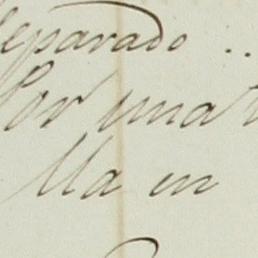 separado ..
Por una
lla en